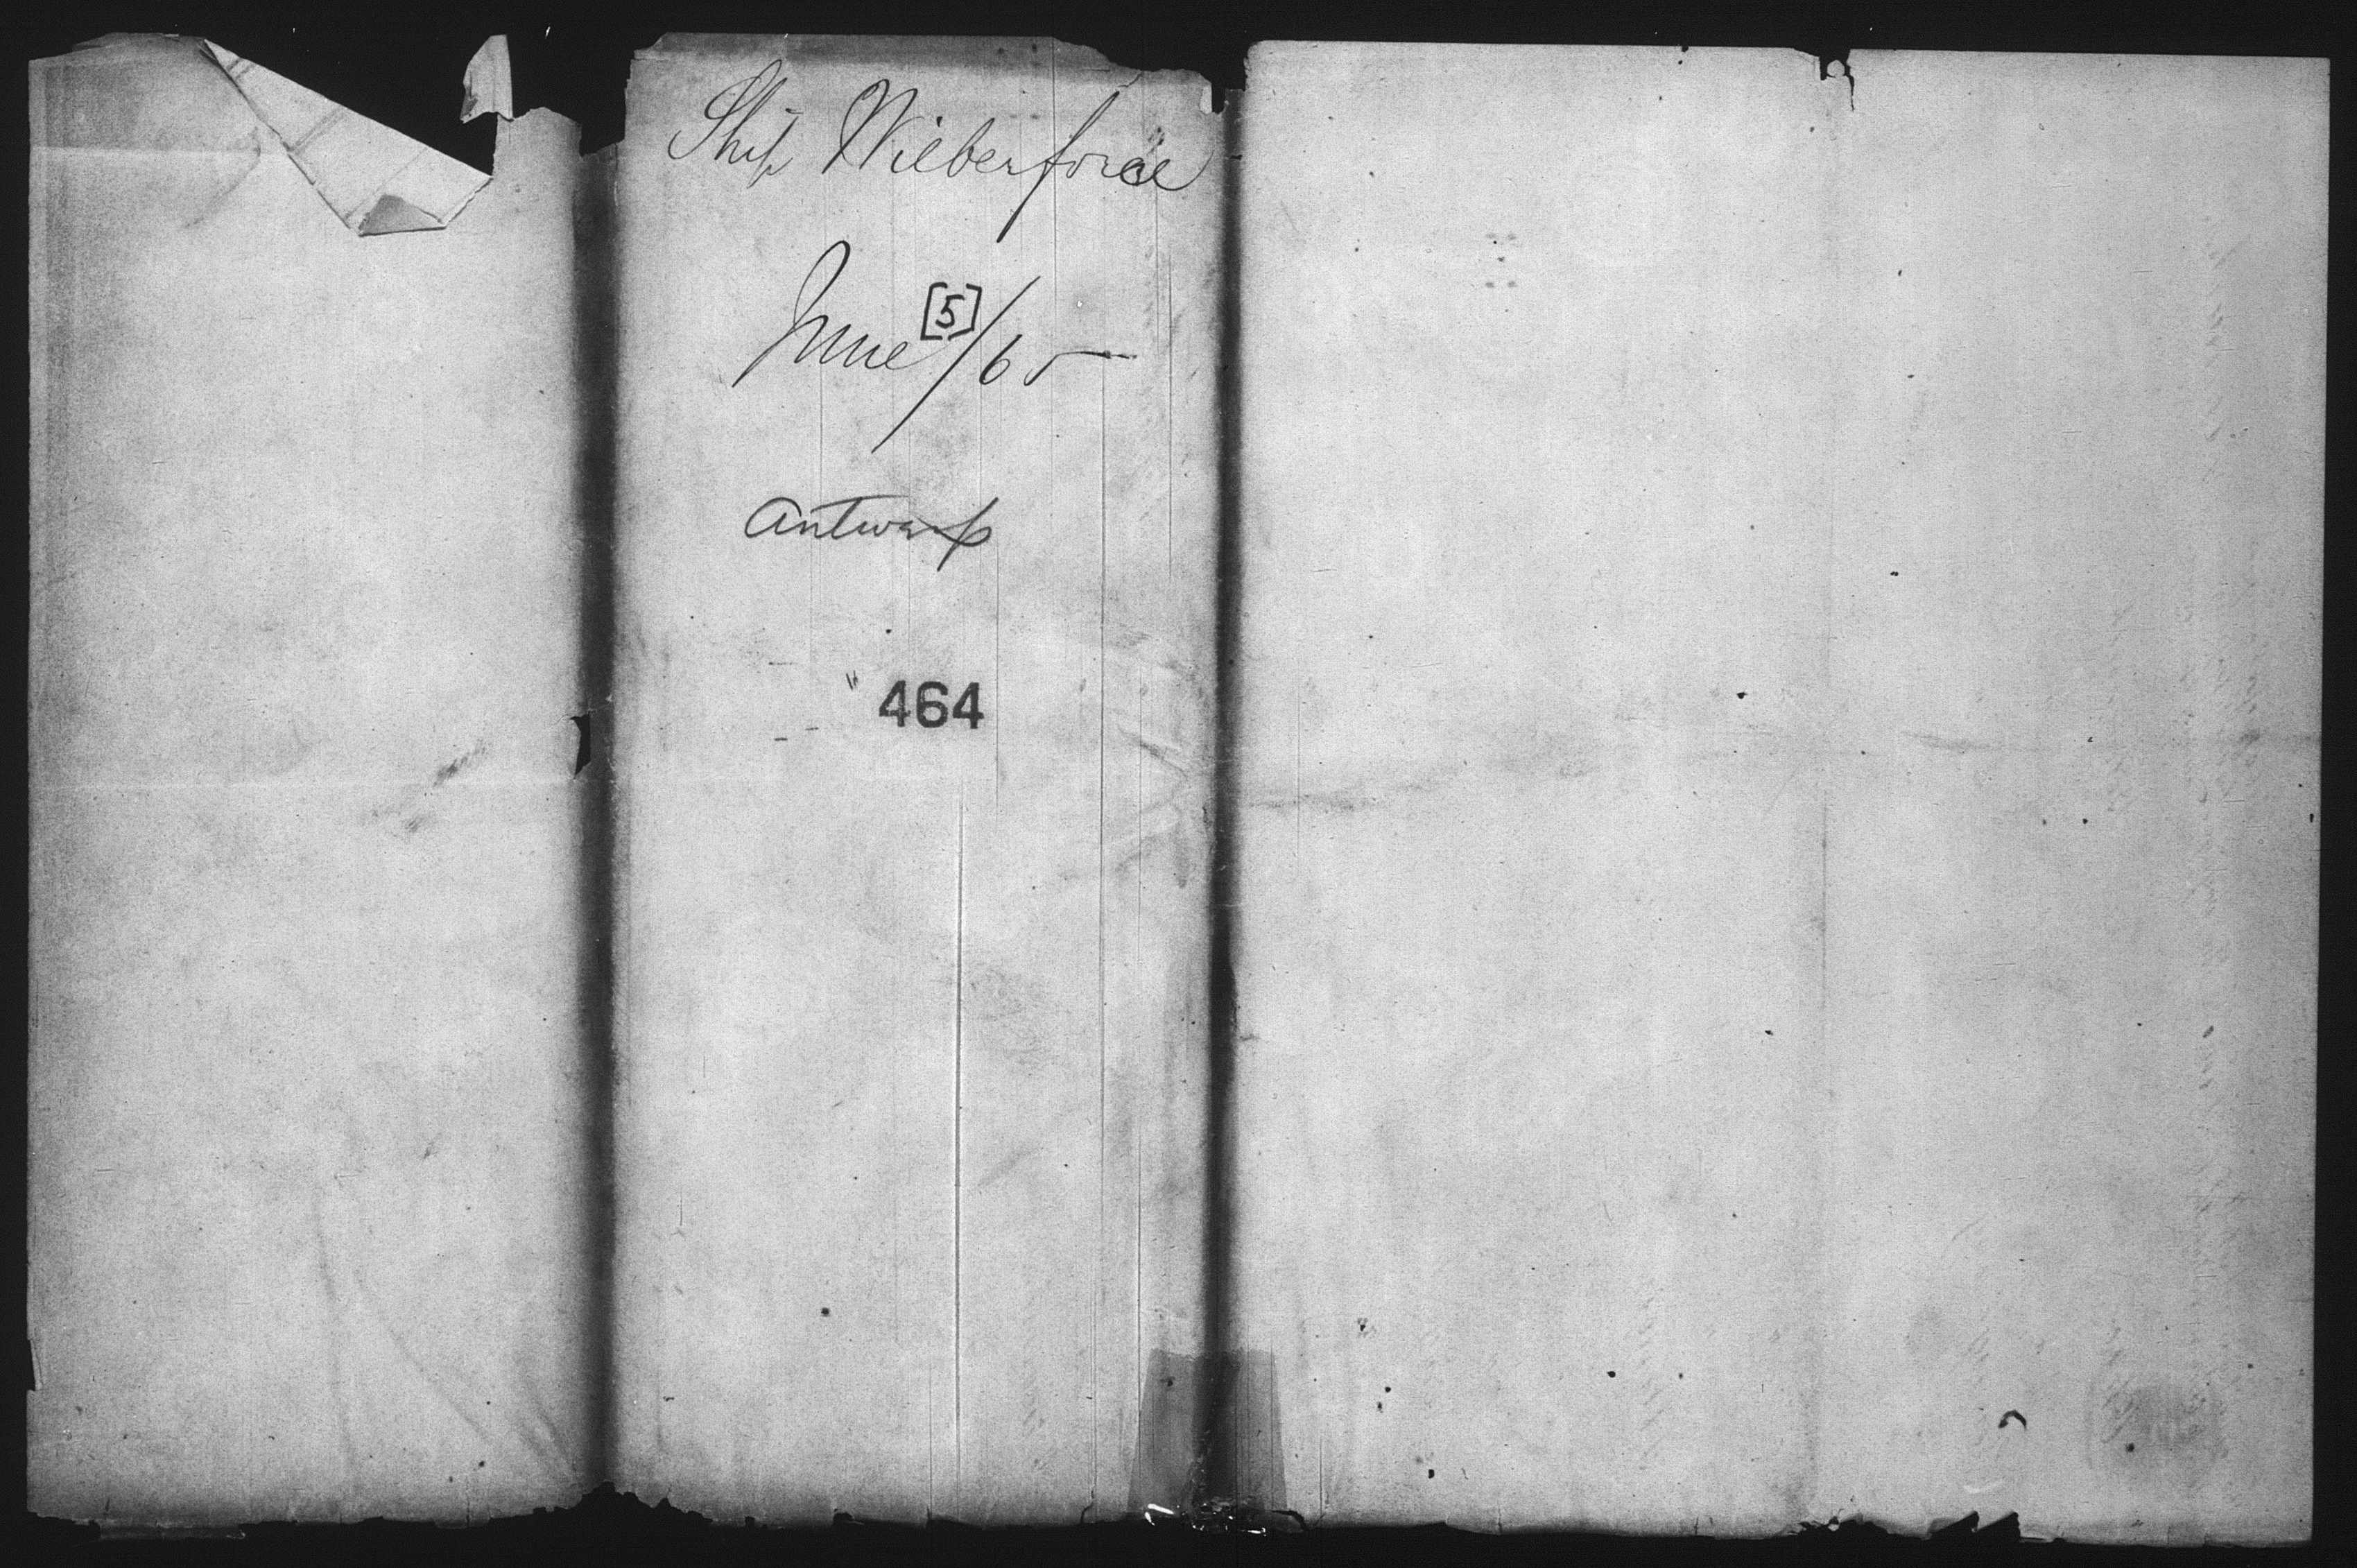 Ship Wilberforce
June [5]/65
Antwerp
464